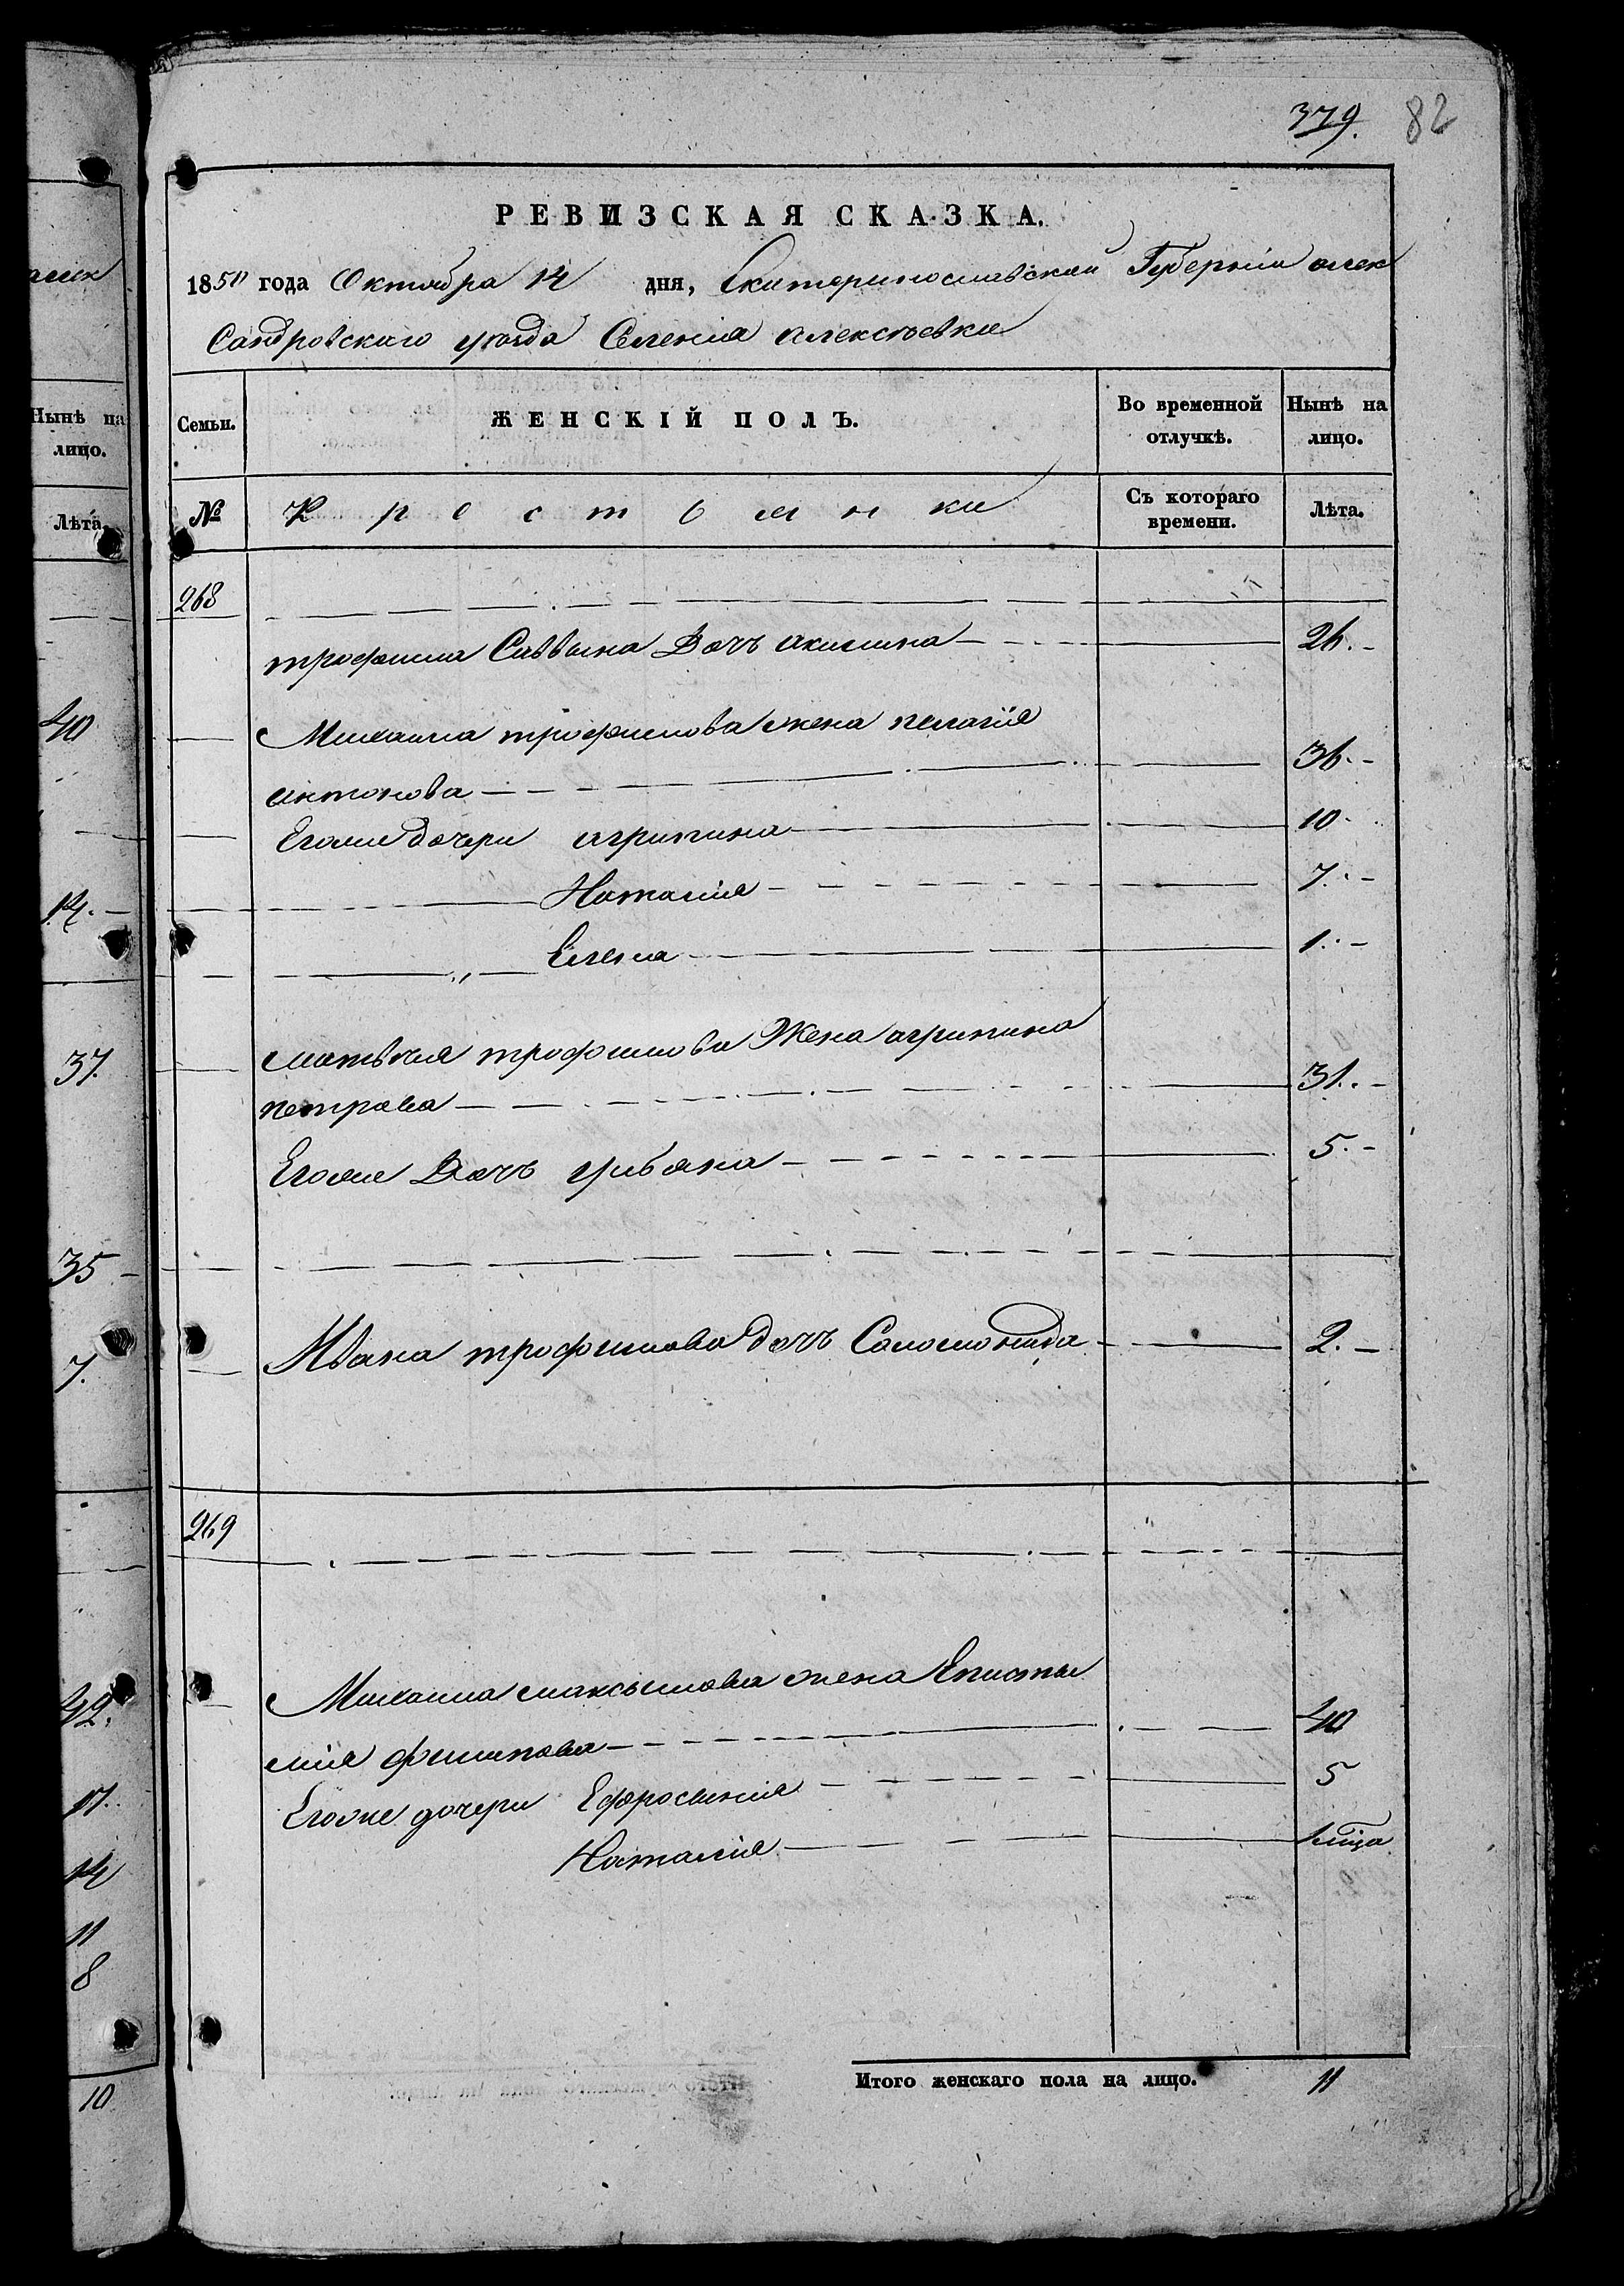 379. 82
РЕВИЗСКАЯ СКАЗКА.
1850 года Октября 14 дня, Екатеринославской Губерніи алек
сандровскаго уезда Селенія алексѣевки
Семьи. ЖЕНСКІЙ ПОЛЪ. Во временной отлучкѣ. Нынѣ на лицо.
№ Крестьянки Съ котораго времени. Лѣта.
268
трофима Саввина Дочь акилина 26.
Михаила трофимова жена пелагія
антонова 36.
Егоже дочери агрипина 10
Наталія 7.
Елена 1.
матвея трофимова Жена агрипина
петрова 31.
Егоже Дочь улияна 5.
Ивана трофимова дочь Соломонида 2.
269
Михаила максимова жена Еписти
мия филипова 40
Егоже дочери Ефросинія 5
Наталія 1 м͞ца
Итого женскаго пола на лицо. 11
алек
Нынѣ на
лицо.
Лѣта.
40
14.
37.
35
7.
42.
17.
14
11
8
10